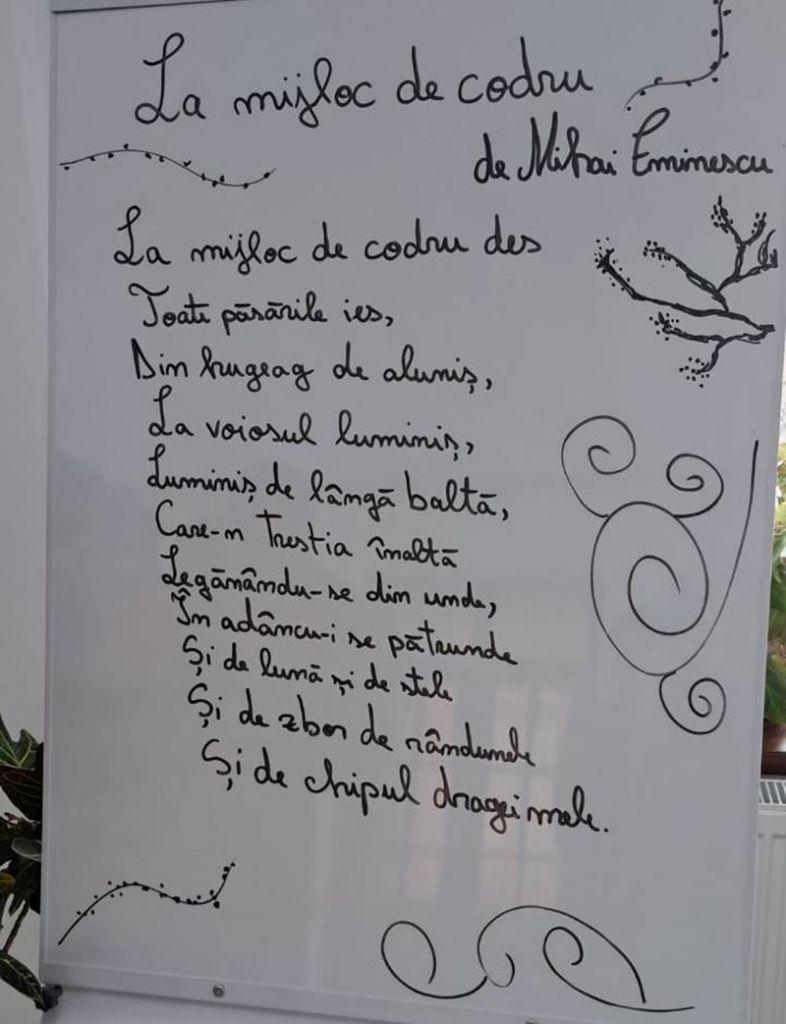 La mijloc de codru
de Mihai Eminescu
La mijloc de codru des
Toate păsările ies,
Din hugeag de aluniș,
La voiosul luminiș,
Luminiș de lângă baltă,
Care-n trestia înaltă
Legănându-se din unde,
În adâncu-i se pătrunde
Și de lună și de stele
Și de zbor de rândunele
Și de chipul dragei mele.